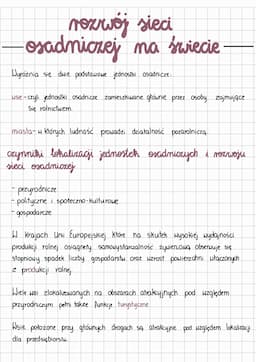 rozwój sieci
osadniczej na świecie
Wyróżnia się dwie podstawowe jednostki osadnicze:
wsie - czyli jednostki osadnicze zamieszkiwane głównie przez osoby zajmujące
się rolnictwem
miasta - w których ludność prowadzi działalność pozarolniczą
czynniki lokalizacji jednostek osadniczych i rozwoju
sieci osadniczej
- przyrodnicze
- polityczne i społeczno-kulturowe
- gospodarcze
W krajach Unii Europejskiej, które na skutek wysokiej wydajności
produkcji rolnej osiągnęły samowystarczalność żywieniową obserwuje się
stopniowy spadek liczby gospodarstw oraz wzrost powierzchni wyłączonych
z produkcji rolnej.
Wiele wsi zlokalizowanych na obszarach atrakcyjnych pod względem
przyrodniczym pełni także funkcje turystyczne.
Wsie położone przy głównych drogach są atrakcyjne pod względem lokalizacji
dla przedsiębiorstw.